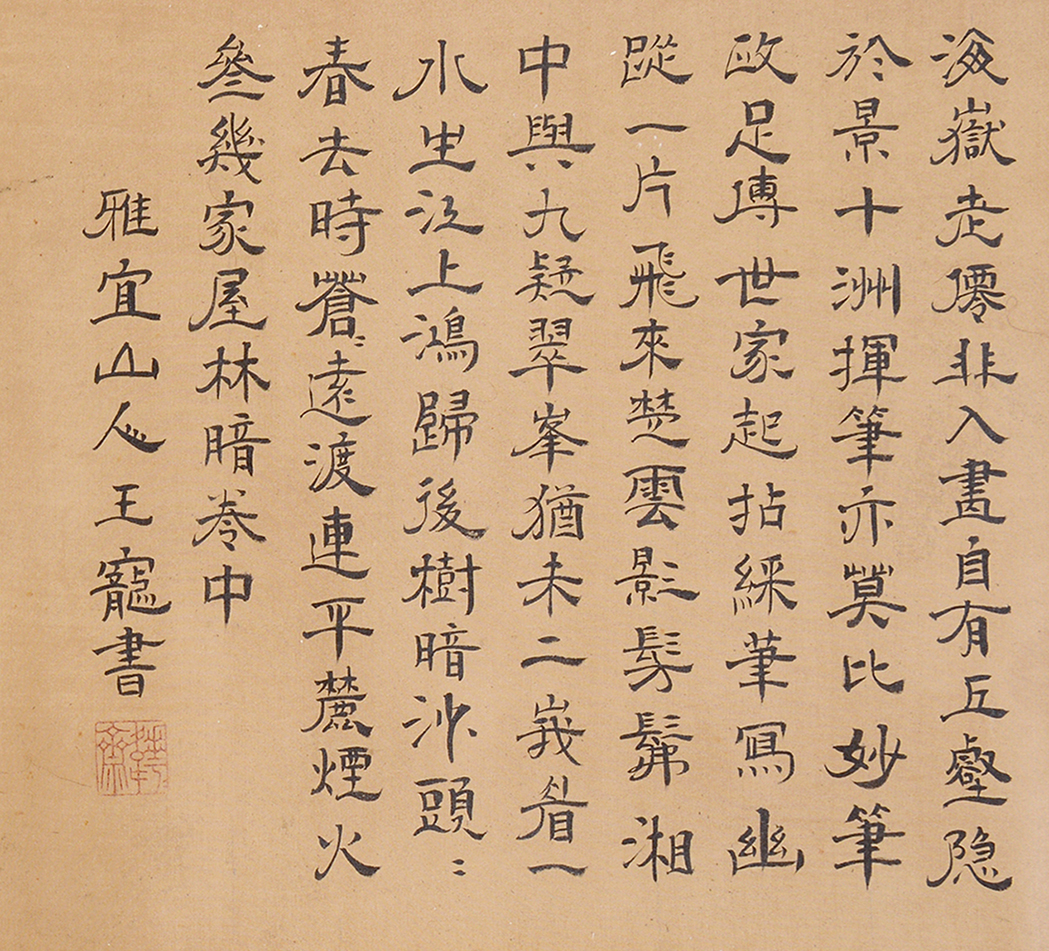 海嶽走僊非入畫自有丘壑隐
於景十洲揮筆亦莫比妙筆
政足傳世家起拈綵筆寫幽
蹤一片飛來楚雲影髣髴湘
中與九疑翠峯猶未二峩眉一
水生江上鴻歸後樹暗沙頭〻
春去時蒼〻遠渡連平麓煙火
叅幾家屋林暗巷中
雅宜山人王寵書